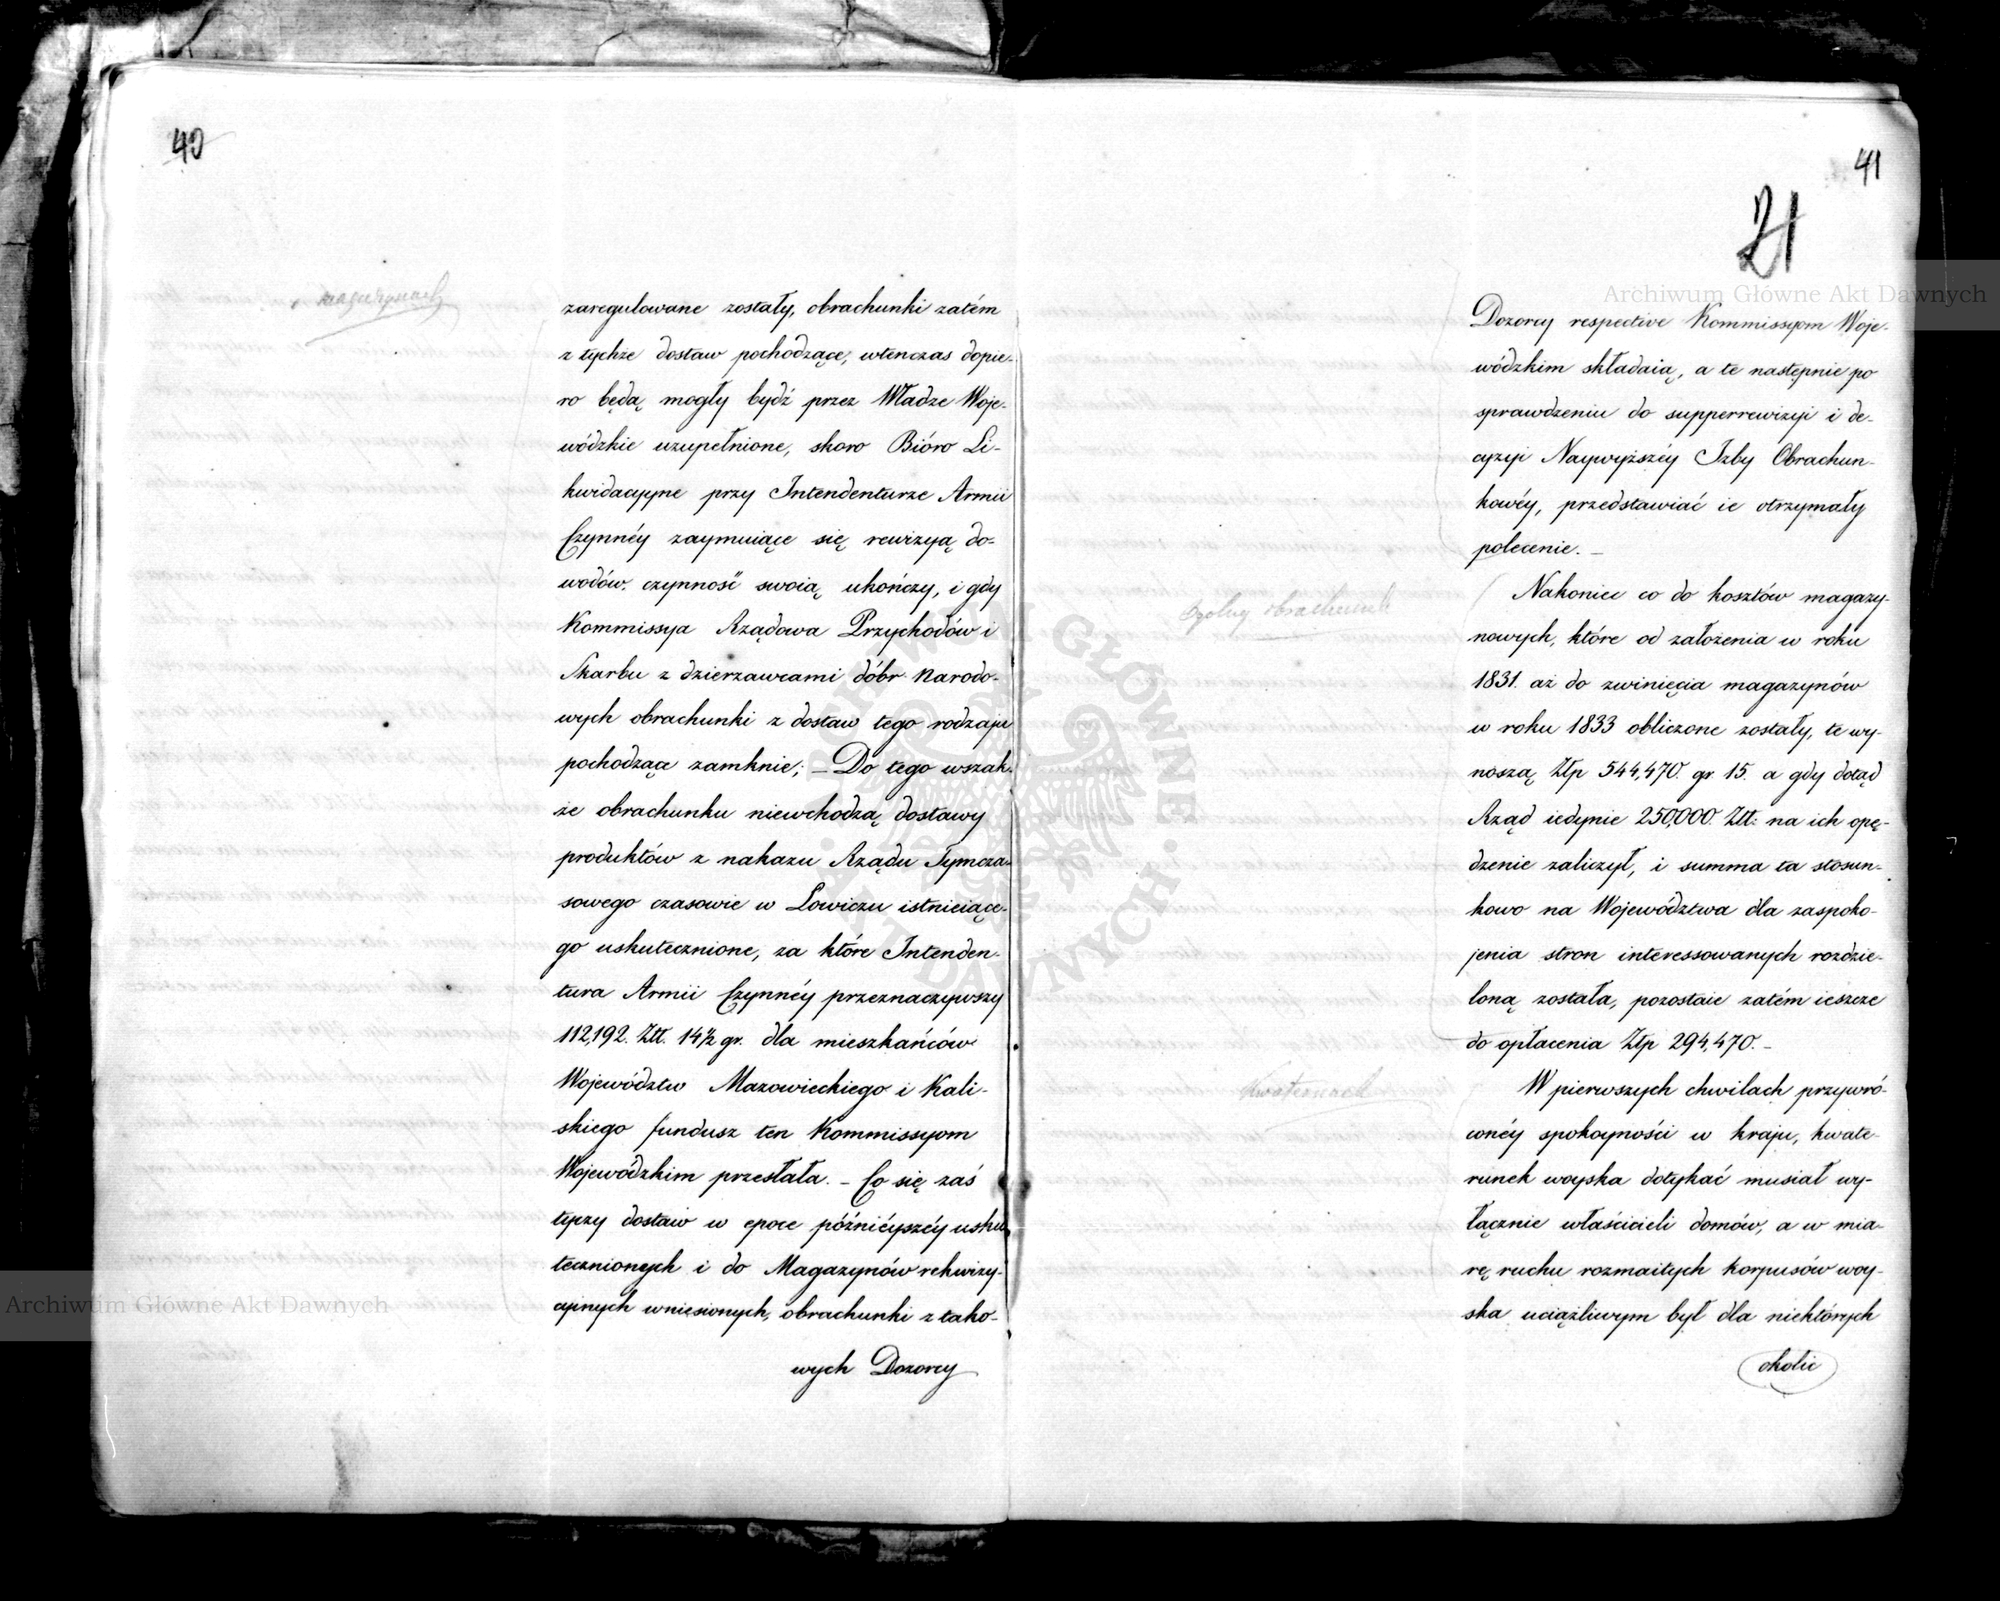 40
magazynach
zaregulowane zostały, obrachunki zatém
z tychże dostaw pochodzące, wtenczas dopie-
ro będą mogły bydź przez Władze Woje-
wódzkie uzupełnione, skoro Bióro Li-
kwidacyyne przy Intendenturze Armii
Czynnéy zaymuiące się rewizyą do-
wodów, czynność swoią ukończy, i gdy
Kommissya Rządowa Przychodów i
Skarbu z dzierzawcami dóbr Narodo-
wych obrachunki z dostaw tego rodzaju
pochodzące zamknie; – Do tego wszak-
że obrachunku niewchodzą dostawy
produktów z nakazu Rządu Tymcza-
sowego czasowie w Lowiczu istnieiące-
go uskutecznione, za które Intenden-
tura Armii Czynnéy przeznaczywszy
112,192. Złł. 14½ gr. dla mieszkańców
Województw Mazowieckiego i Kali-
skiego fundusz ten Kommissyom
Wojewódzkim przesłała. – Co się zaś
tyczy dostaw w epoce późniéyszéy usku-
tecznionych i do Magazynów rekwizy-
cyinych wniesionych, obrachunki z tako-
wych Dozorcy
41
21
Dozorcy respective Kommissyom Woje-
wódzkim składaią, a te następnie po
sprawdzeniu do supperrewizyi i de-
cyzyi Naywyższéy Izby Obrachun-
kowéy, przedstawiać ie otrzymały
polecenie. –
ogólny obrachunek
Nakoniec co do kosztów magazy-
nowych, które od założenia w roku
1831. aż do zwinięcia magazynów
w roku 1833 obliczone zostały, te wy-
noszą Złp 544,470. gr. 15. a gdy dotąd
Rząd iedynie 250,000. Złł: na ich opę-
dzenie zaliczył, i summa ta stosun-
kowo na Województwa dla zaspoko-
jenia stron interessowanych rozdzie-
loną została, pozostaie zatém ieszcze
do opłacenia Złp 294,470. –
Kwaterunek
W pierwszych chwilach przywró-
conéy spokoyności w kraju, kwate-
runek woyska dotykać musiał wy-
łącznie właścicieli domów, a w mia-
rę ruchu rozmaitych korpusów woy-
ska uciążliwym był dla niektórych
okolic
Archiwum Główne Akt Dawnych
Archiwum Główne Akt Dawnych
ARCHIWUM GŁÓWNE AKT DAWNYCH